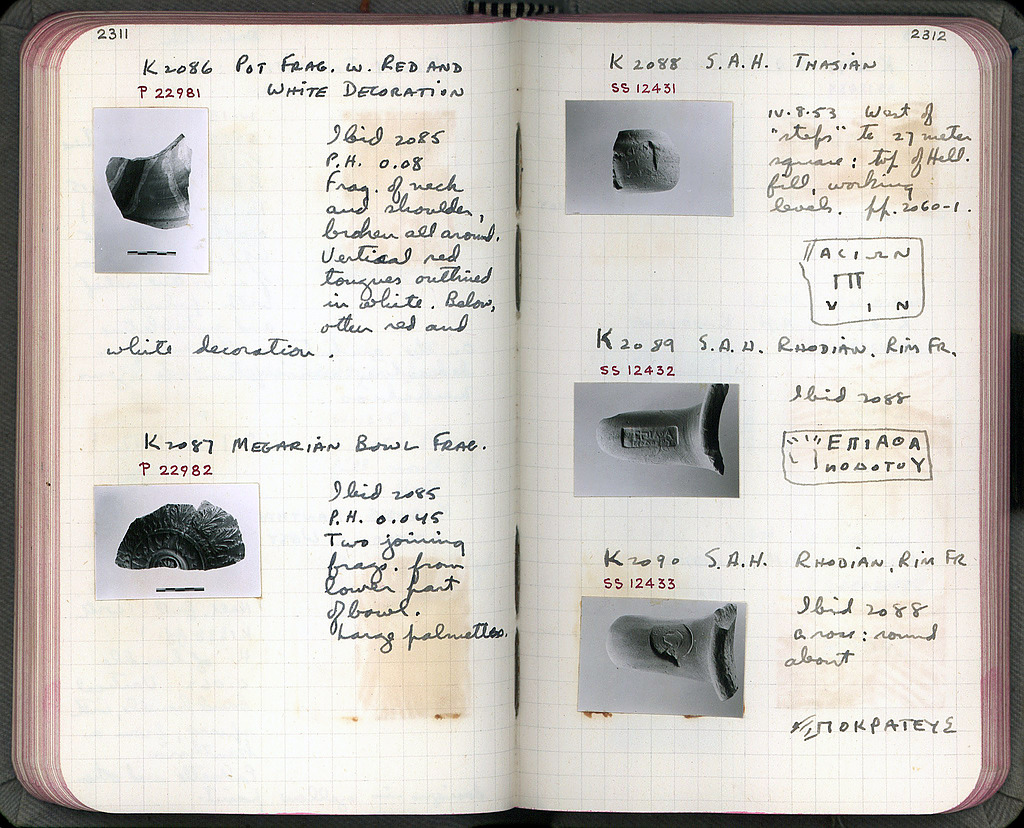 2311
K 2086 POT FRAG. W. RED AND
P 22981 WHITE DECORATION
Ibid 2085
P.H. 0.08
Frag. of neck
and shoulder,
broken all around.
Vertical red
tongues outlined
in white. Below,
other red and
white decoration.
K2087 MEGARIAN BOWL FRAG.
P 22982
Ibid 2085
P.H. 0.045
Two joining
frags. from
lower part
of bowl.
Large palmettes.
2312
K 2088 S.A.H. THASIAN
SS 12431
IV.8.53 West of
"steps" to 27 meter
square: top of Hell.
fill, working
levels. pp. 2060-1.
ΑCΙΩΝ
ΠΙ
V I N
K2089 S.A.H. RHODIAN, RIM FR.
SS 12432
Ibid 2088
ΕΠΙΑΘΑ
ΝΟΔΟΤΟΥ
K2090 S.A.H. RHODIAN, RIM FR
SS 12433
Ibid 2088
a rose: round
about
ΠΟΚΡΑΤΕΥΣ